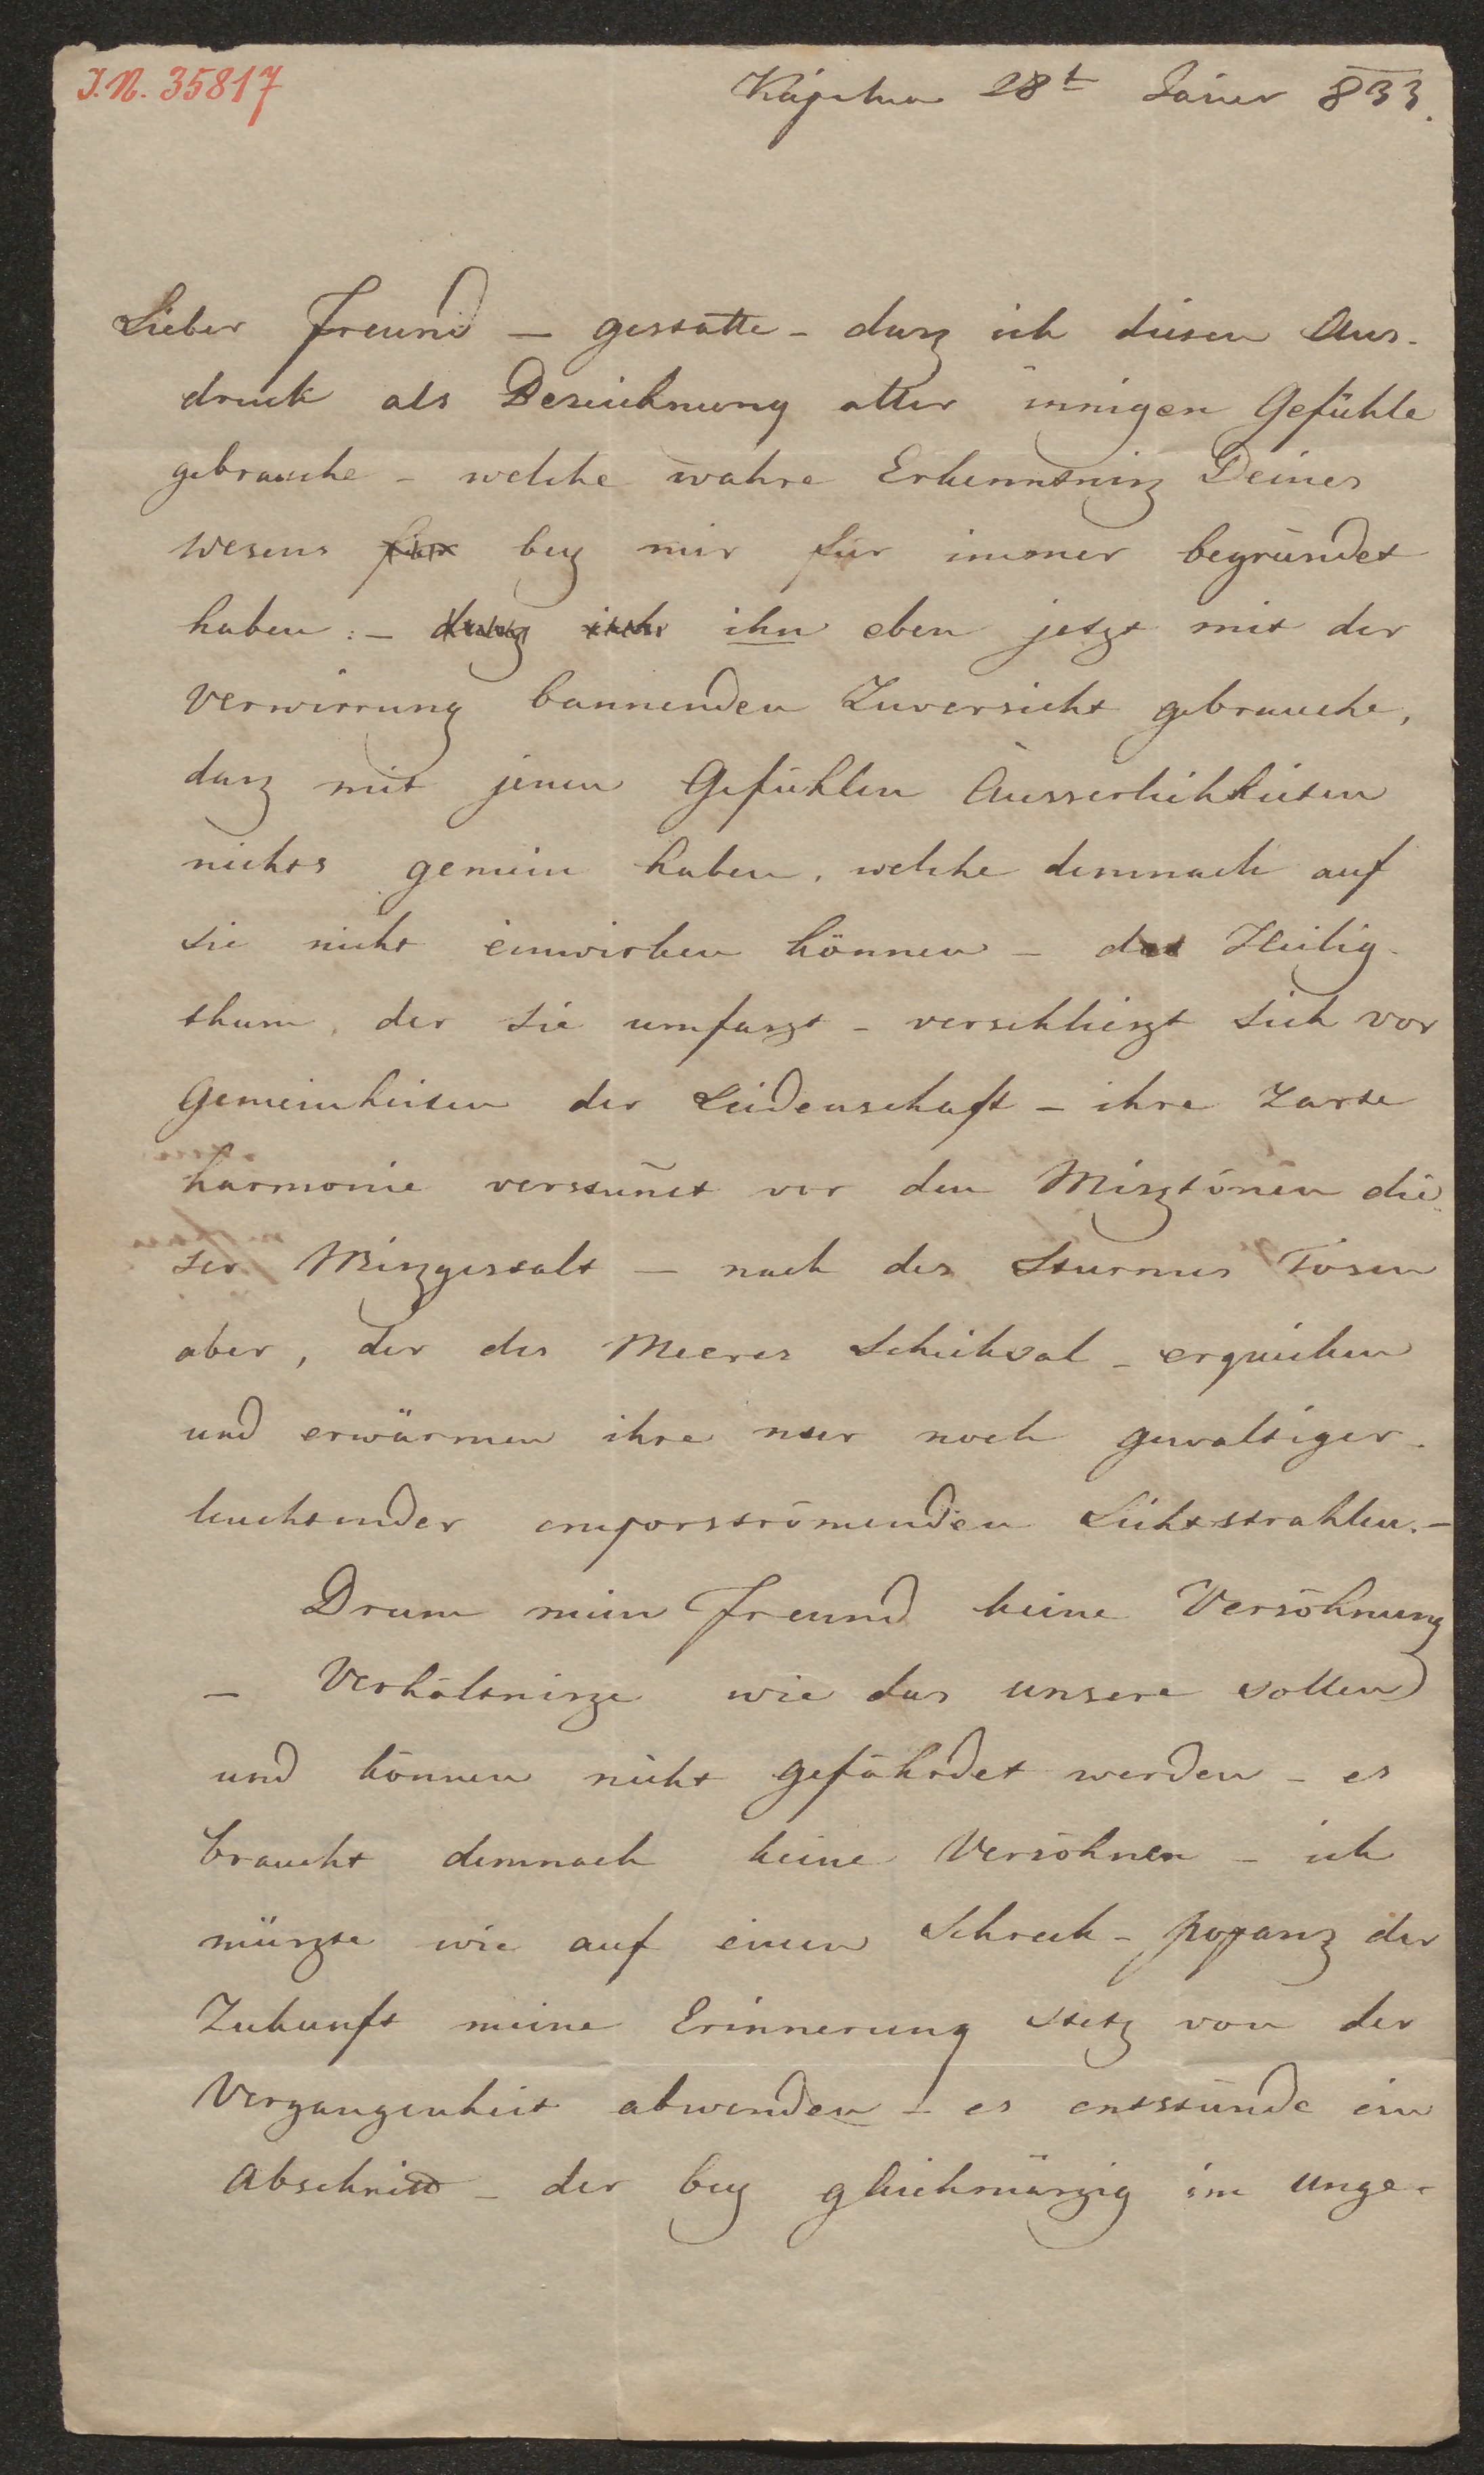 I.N. 35817
28t Jäner 833.
Lieber Freund – gestatte – dasz ich diesen Aus-
druck als Bezeichnung aller innigen Gefühle
gebrauche – welche wahre Erkenntnisz Deines
Wesens für bey mir für immer begründet
haben: – dasz ich ihn eben jetzt mit der
Verwirrung bannenden Zuversicht gebrauche,
dasz mit jenen Gefühlen Äusserlichkeiten
nichts gemein haben, welche demnach auf
sie nicht einwirken können – das Heilig-
thum, der sie umfaszt – verschlieszt sich vor
Gemeinheiten der Leidenschaft – ihre zarte
Harmonie verstum̄t vor den Misztönen die
ser Miszgestalt – nach des Sturmes Tosen
aber, der des Meeres Schicksal – erquicken
und erwärmen ihre nur noch gewaltiger-
leuchtender emporströmenden Lichtstrahlen. –
Drum mein Freund keine Versöhnung
– Verhältnisze wie das unsere sollen
und können nicht gefährdet werden – es
braucht demnach keine Versöhnen – ich
müszte wie auf einen Schreck-popanz der
Zukunft meine Erinnerung stetz von der
Vergangenheit abwenden – es entstünde ein
Abschnitt – der bey gleichmäszig im unge-